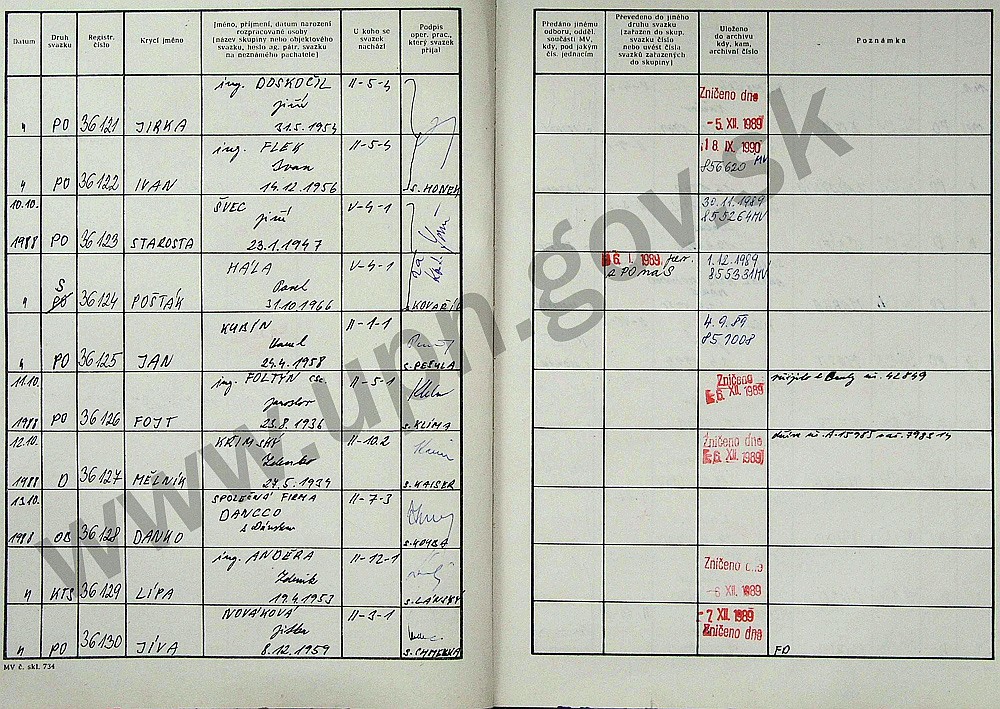 Datum
Druh
svazku
Registr.
číslo
Krycí jméno
Jméno, příjmení, datum narození
rozpracované osoby
(název skupiny nebo objektového
svazku, heslo ag. pátr. svazku
na neznámého pachatele)
U koho se
svazek
nachází
Podpis
oper. prac.,
který svazek
přijal
Předáno jinému
odboru, odděl.
součásti MV,
kdy, pod jakým
čís. jednacím
Převedeno do jiného
druhu svazku
(zařazen do skup.
svazku číslo
nebo uvést čísla
svazků zařazených
do skupiny)
Uloženo
do archivu
kdy, kam,
archivní číslo
Poznámka
ing. DOSKOČIL II-5-4
Jiří
" PO 36121 JIRKA 31.5.1954
Zničeno dne
-5. XII. 1989
ing. FLEK II-5-4
Ivan
" PO 36122 IVAN 14.12.1956 s. HONEK
18. IX. 1990
856620 MV
10.10. ŠVEC V-4-1
Jiří
1988 PO 36123 STAROSTA 23.1.1947
30.11.1989
855264 MV
S HÁLA V-4-1
Pavel
" PO 36124 POŠŤÁK 31.10.1966 s. KOVAŘÍK
6. I. 1989 1.12.1989
z PO na S 855331 MV
KUBÍN II-1-1
Kamil
" PO 36125 JAN 24.4.1958 s. PEŠULA
4.9.89
851008
11.10. ing. FOLTÝN CSc. II-5-1
Jaroslav
1988 PO 36126 FOJT 23.8.1936 s. KLÍMA
Zničeno
6. XII. 1989
12.10. KŘIMSKÝ II-10.2
Zdenko
1988 D 36127 MĚLNÍK 27.5.1934 s. KAISER
Zničeno dne
6. XII. 1989
13.10. SPOLEČNÁ FIRMA II-7-3
DANCCO
s Dánskem
1988 OB 36128 DANKO
ing. ANDERA II-12-1
Zdeněk
" KTS 36129 LÍPA 19.4.1953 s. LÁNSKÝ
Zničeno dne
-6 XII. 1989
NOVÁKOVÁ II-3-1
Jitka
" PO 36130 JÍVA 8.12.1959
-7 XII. 1989
Zničeno dne
FO
MV č. skl. 734
www.upn.gov.sk